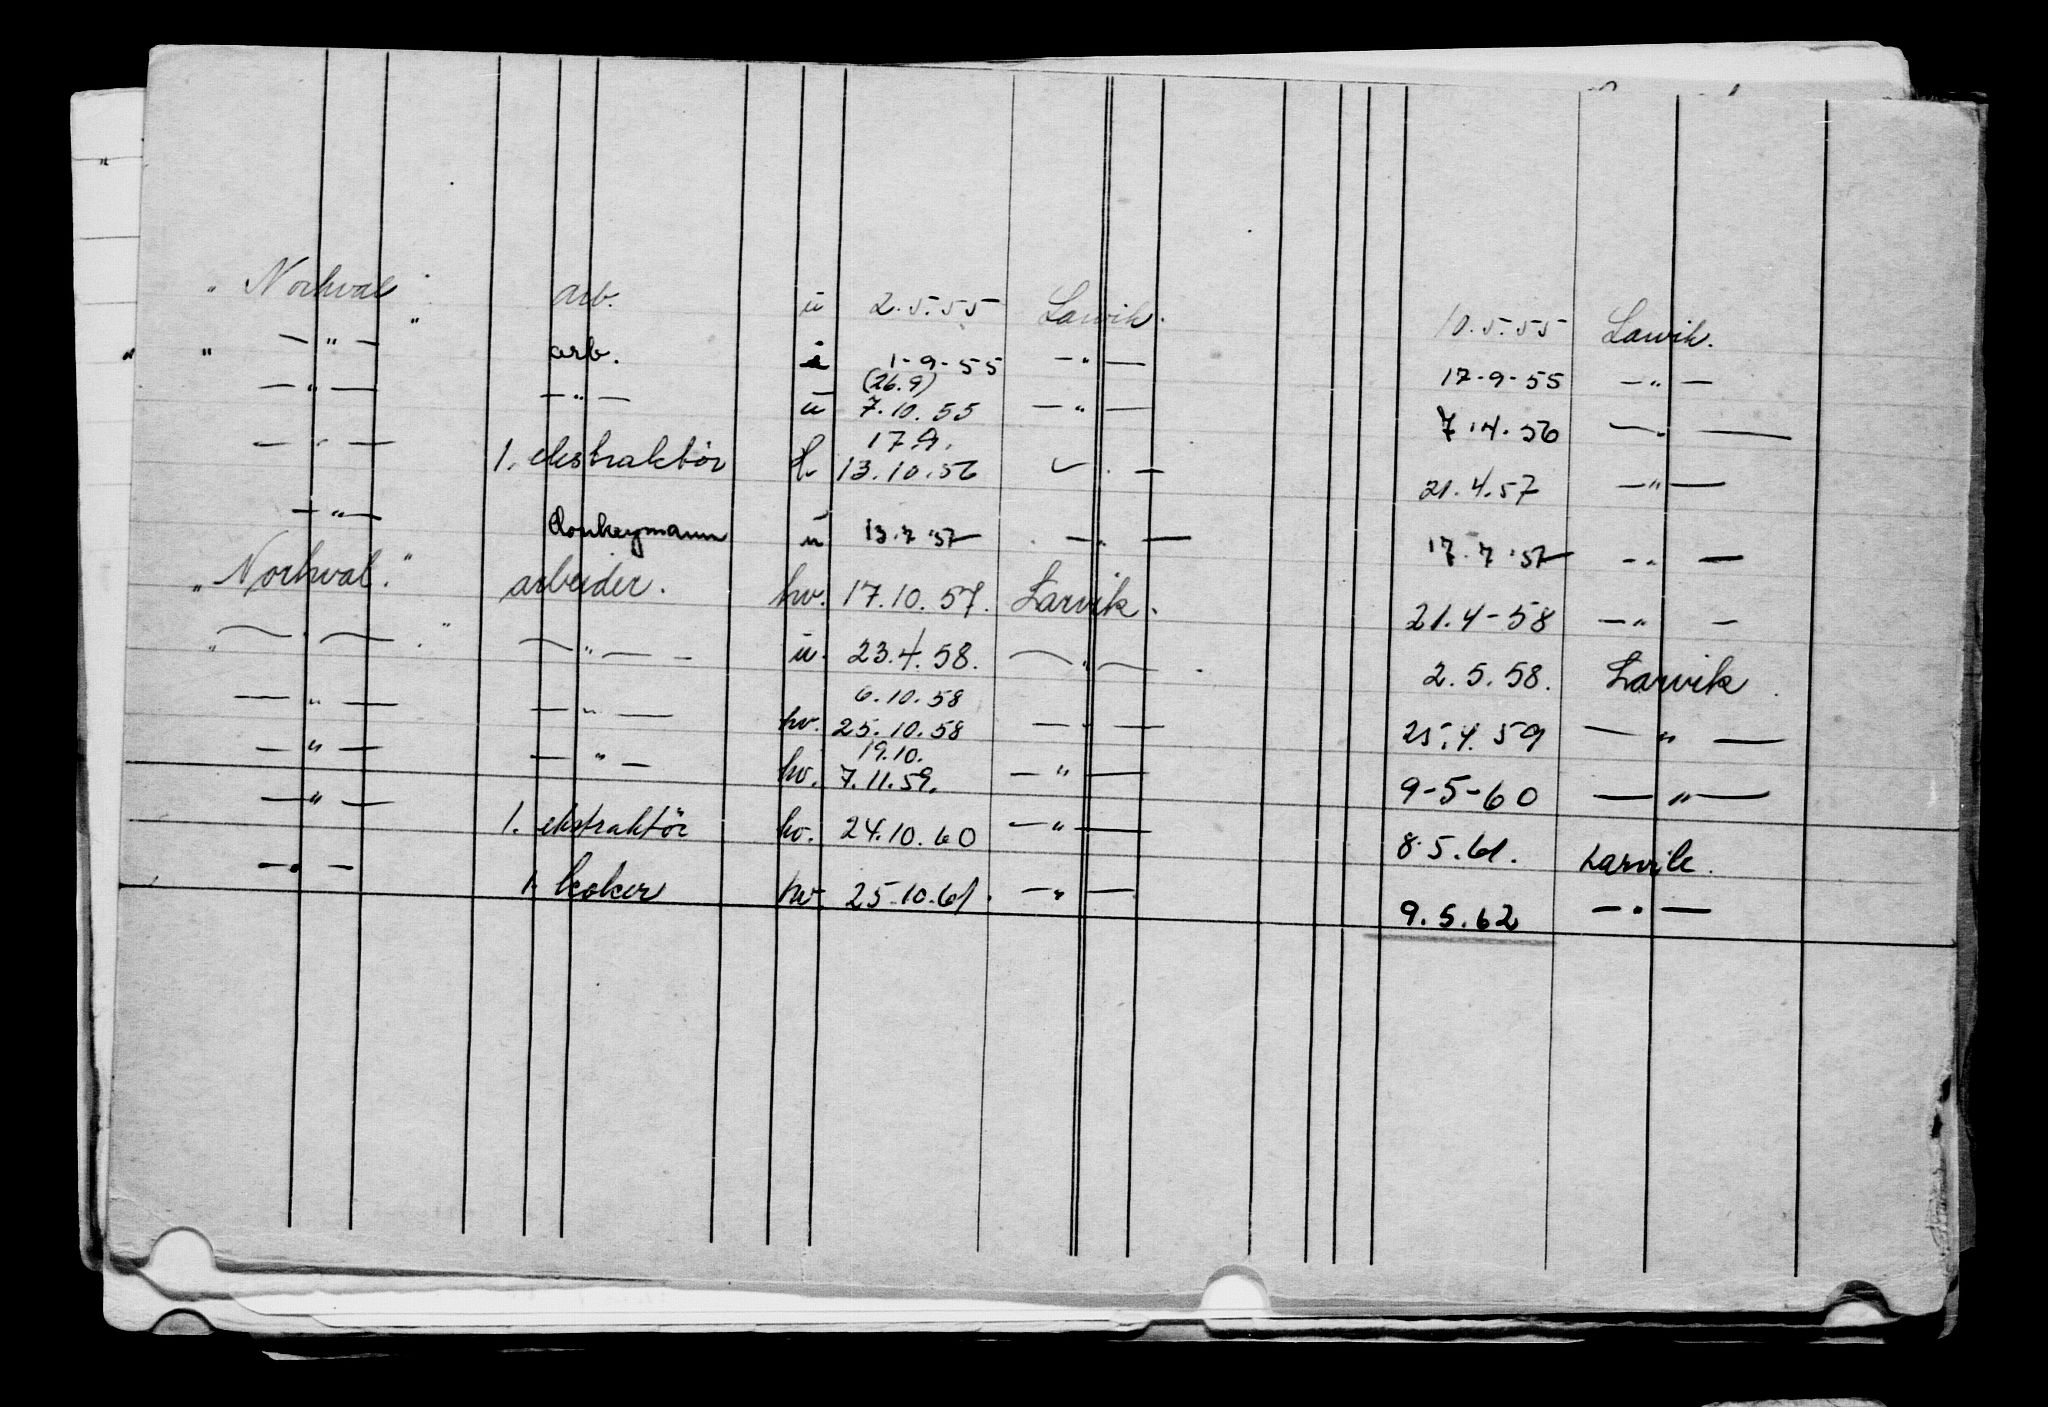 " Norhval " arb. u 2.5.55 Larvik. 10.5.55 Larvik.
" — " — " arb. u 1-9-55 — " — 17-9-55 — " —
— " — — " — (26.9)
u 7.10.55 — " — 7.4.56 — " —
— " — 1. ekstraktör 17.9.
13.10.56 — " — 21.4.57 — " —
— " — Donkeymann u 13.7.57 — " — 17.7.57 — " —
" Norhval." arbeider. hv. 17.10.57. Larvik. 21.4-58 — " —
" — " — " — " — — u. 23.4.58. — " — . 2.5.58. Larvik.
— " — — " — 6.10.58
hv. 25.10.58 — " — 25.4.59 — " —
— " — — " — 19.10.
hv. 7.11.59. — " — 9-5-60 — " —
— " — 1. ekstraktör hv. 24.10.60 — " — 8.5.61. Larvik.
— " — 1. koker hv. 25.10.61. — " — 9.5.62 — " —